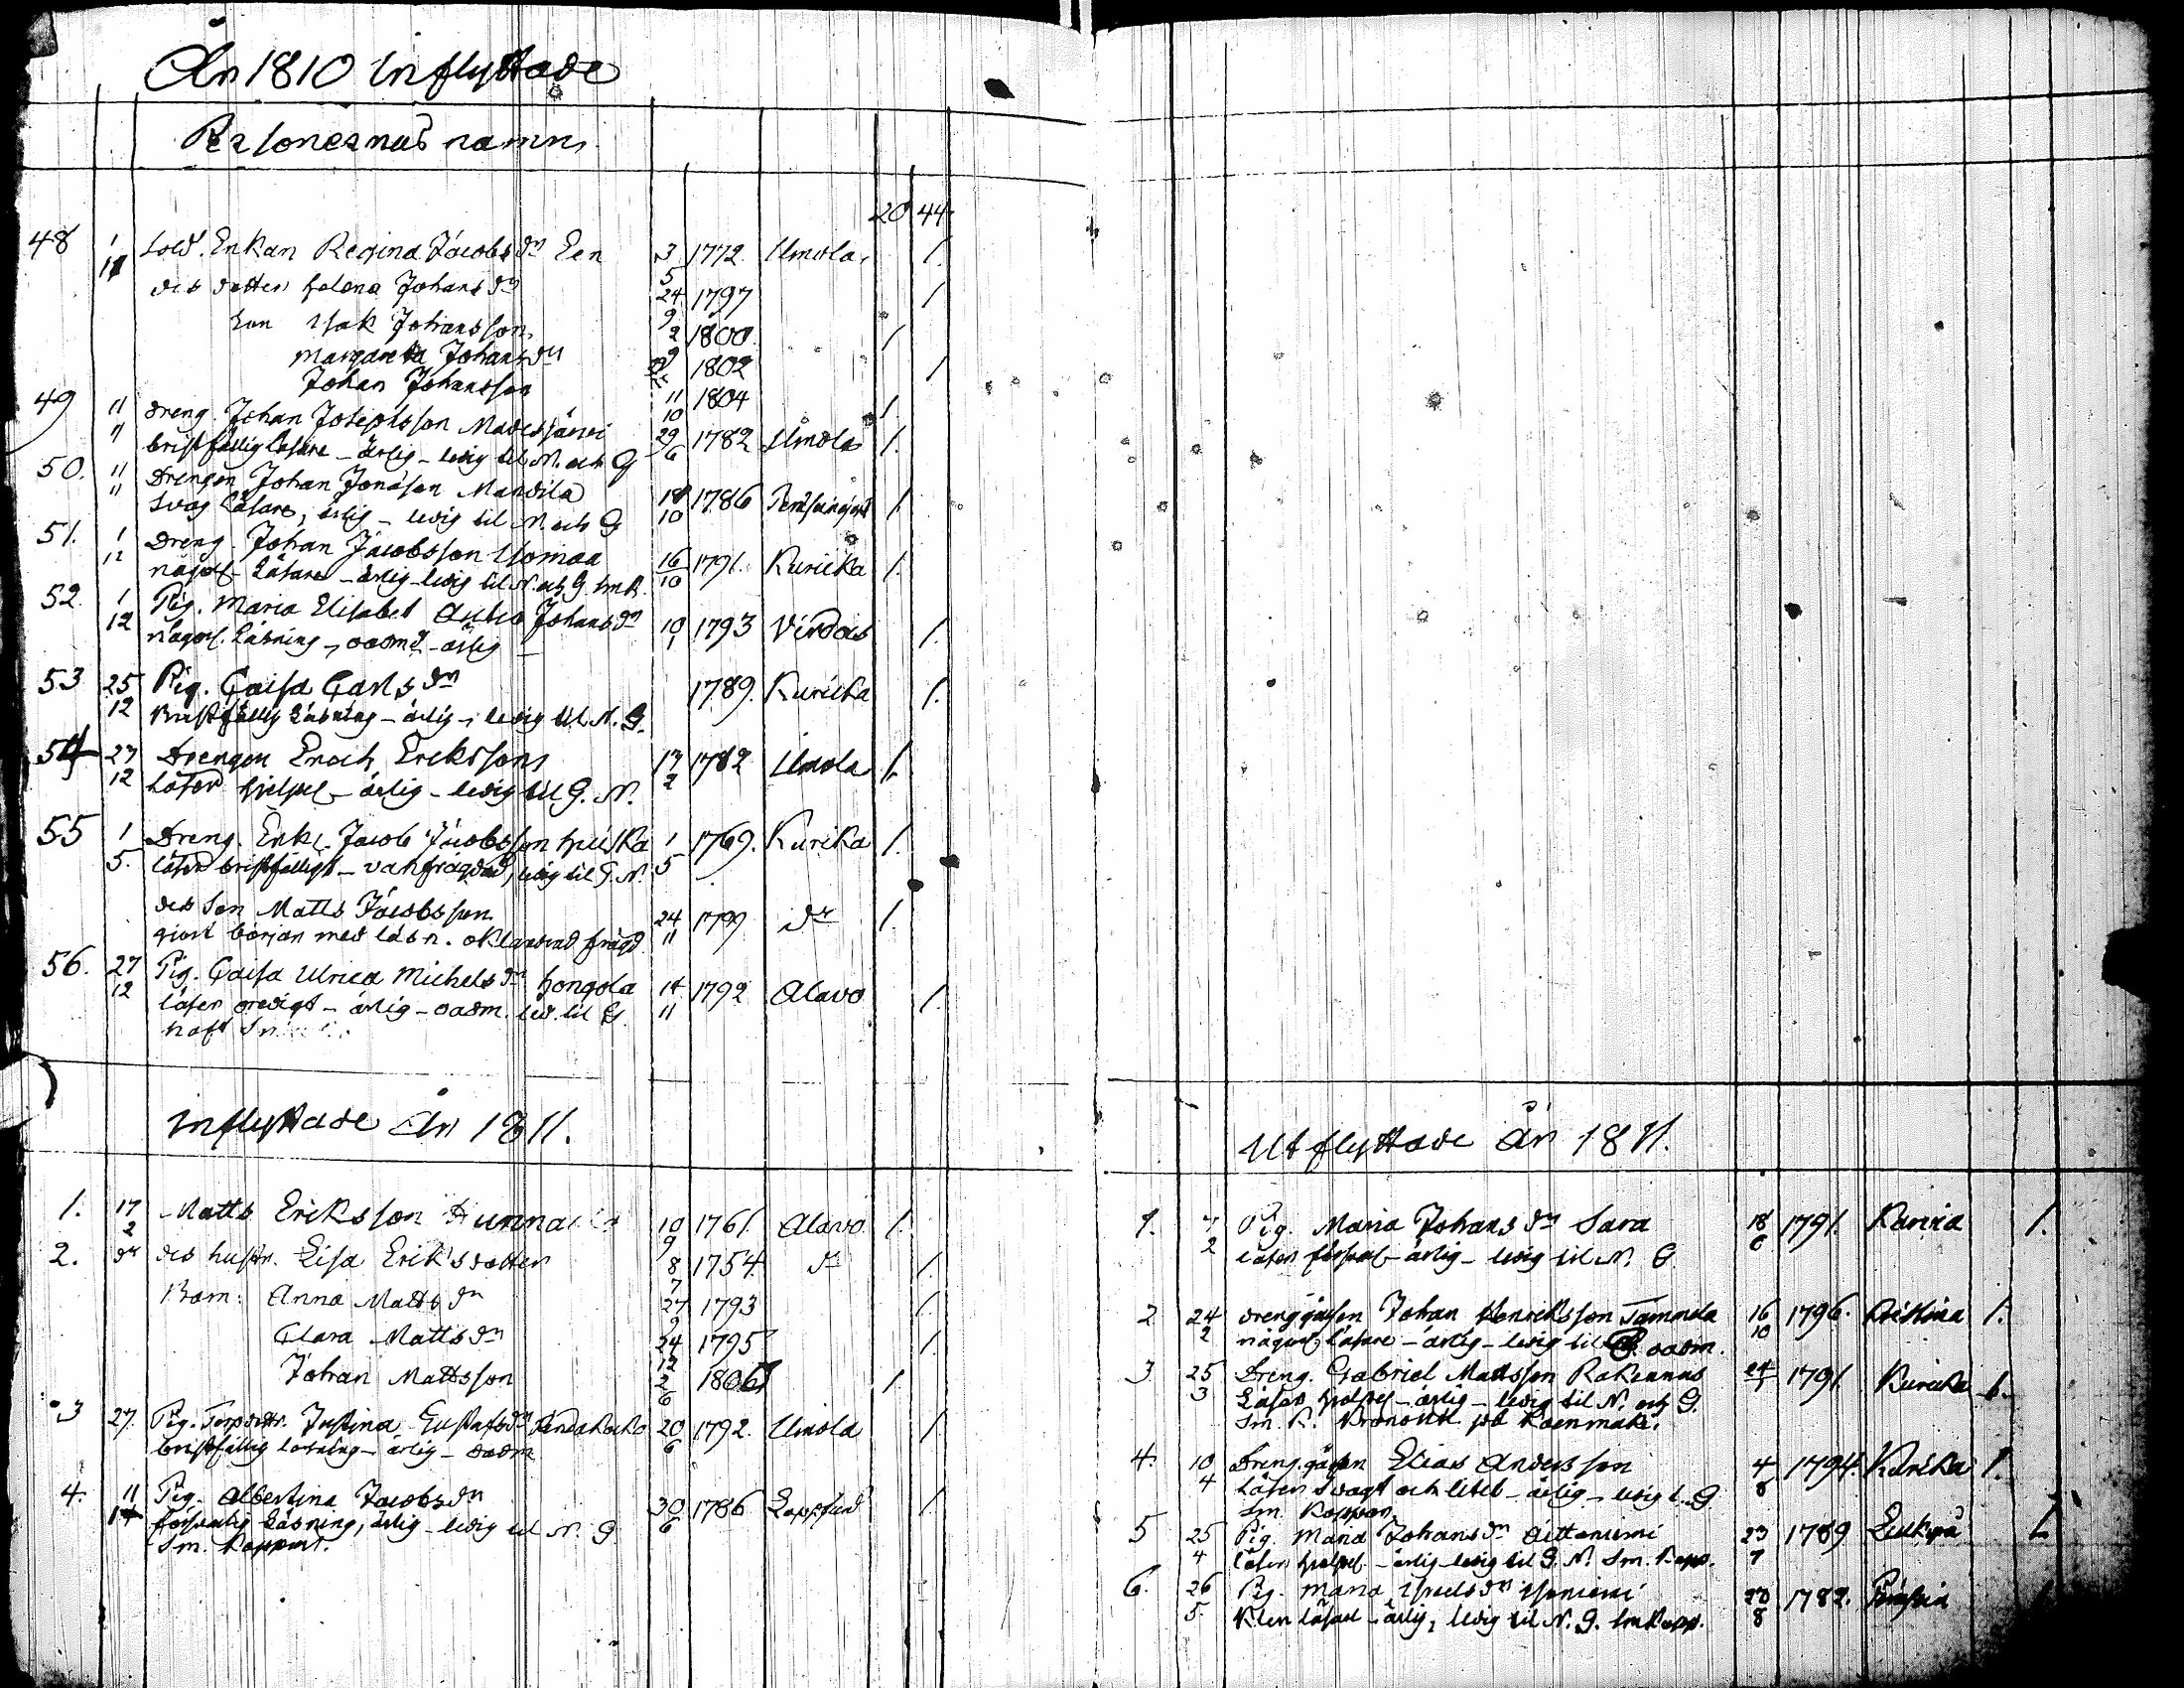 År 1810 inflyttade
Personernas namn
20 44
48 1 Sold. Enkan Regina Jacobsdr Een 3 1772. Ilmola, 1.
12 5
des dotter Helena Johansdr 24 1797 1
9
Son Isak Johansson 2 1800 1
9
Margareta Johansdr 1802 1
Johan Johansson 11 1804 1.
10
49 11 Dreng. Johan Josephsson Madesjärvi 29 1782 Ilmola 1.
11 bristfällig läsare - ärlig - ledig til N. och G 6
50. 11 Drengen Johan Jonasson Mandila 18 1786 1
11 Svag läsare, ärlig - ledig til N. och G 10
51. 1 Dreng. Johan Jacobsson Isomaa 16 1791. Kuricka 1.
12 någorl. läsare - ärlig - ledig til N. och G. Sm K. 10
52. 1 Pig. Maria Elisabet Johansdr 10 1793 Virdois 1.
12 någorl. läsning, oadmd - ärlig 1
53 25 Pig. Caisa Carlsdr 1789. Kuricka 1.
12 Bristfällig läsning - ärlig, ledig til N. G.
54 27 Drengen Enoch Eriksson 17 1782 Ilmola 1.
12 Läser hjelpel. - ärlig - ledig til G. N. 2
55 1 Dreng. Enkl. Jacob Jacobsson 1 1769. Kurika 1.
5. läser bristfälligt - vanfrägdad, ledig til G. N. 5
des Son Matts Jacobsson 24 1799 dr 1.
giort början med läsn. oklandrad frägd 11
56. 27 Pig. Caisa Ulrica Michelsdr Hongola 14 1792 Alavo 1.
12 läser oredigt - ärlig - oadm. led. til G. 11
haft
inflyttade År 1811.
1. 17 Matts Eriksson 10 1761. Alavo 1.
2 9
2. dr des hustr. Lisa Eriksdotter 8 1754. dr 1.
7
Barn: Anna Mattsdr 27 1793 1.
9
Clara Mattsdr 24 1795 1.
12
Johan Mattsson 2 1806 1
6
3 27. Pig. Torpdottr. Justina Gustafsdr 20 1792. Ilmola 1
bristfällig läsning - ärlig - oadm 6
4. 11 Pig. Albertina Jacobsdr 30 1786 Lappfierd 1
14 försvarlig läsning, ärlig - ledig til N. G 6
Sm. Koppor.
Utflyttade År 1811.
1. 7 Pig. Maria Johansdr Sara 18 1791. Kurika 1.
2 läser försvarl. - ärlig - ledig til N. G 6
2 24 Drenggåssen Johan Henriksson Tammela 16 1796. Kristina 1.
2 någorl. läsare - ärlig - ledig til G. oadm. 10
3 25 Dreng. Gabriel Mattsson Rakennus 24 1791 Kuricka 1.
3 Läser hjelpel. - ärlig - ledig til N. och G.
Sm. K.
4. 10 Dreng gåssen Elias Andersson 4 1794. Kurika 1.
4 Läser Svagt och litet - ärlig - ledig t. G 8
Sm. Koppor
5 25 Pig. Maria Johansdr Aittoniemi 23 1789 1
4 läser hjelpel. - ärlig - ledig til G. N. Sm. Kopp. 7
6. 26 Pig. Maria Isaksdr Isoniemi 20 1782.
5. Klen läsare - ärlig, ledig til N. G. Sm Kopp. 8